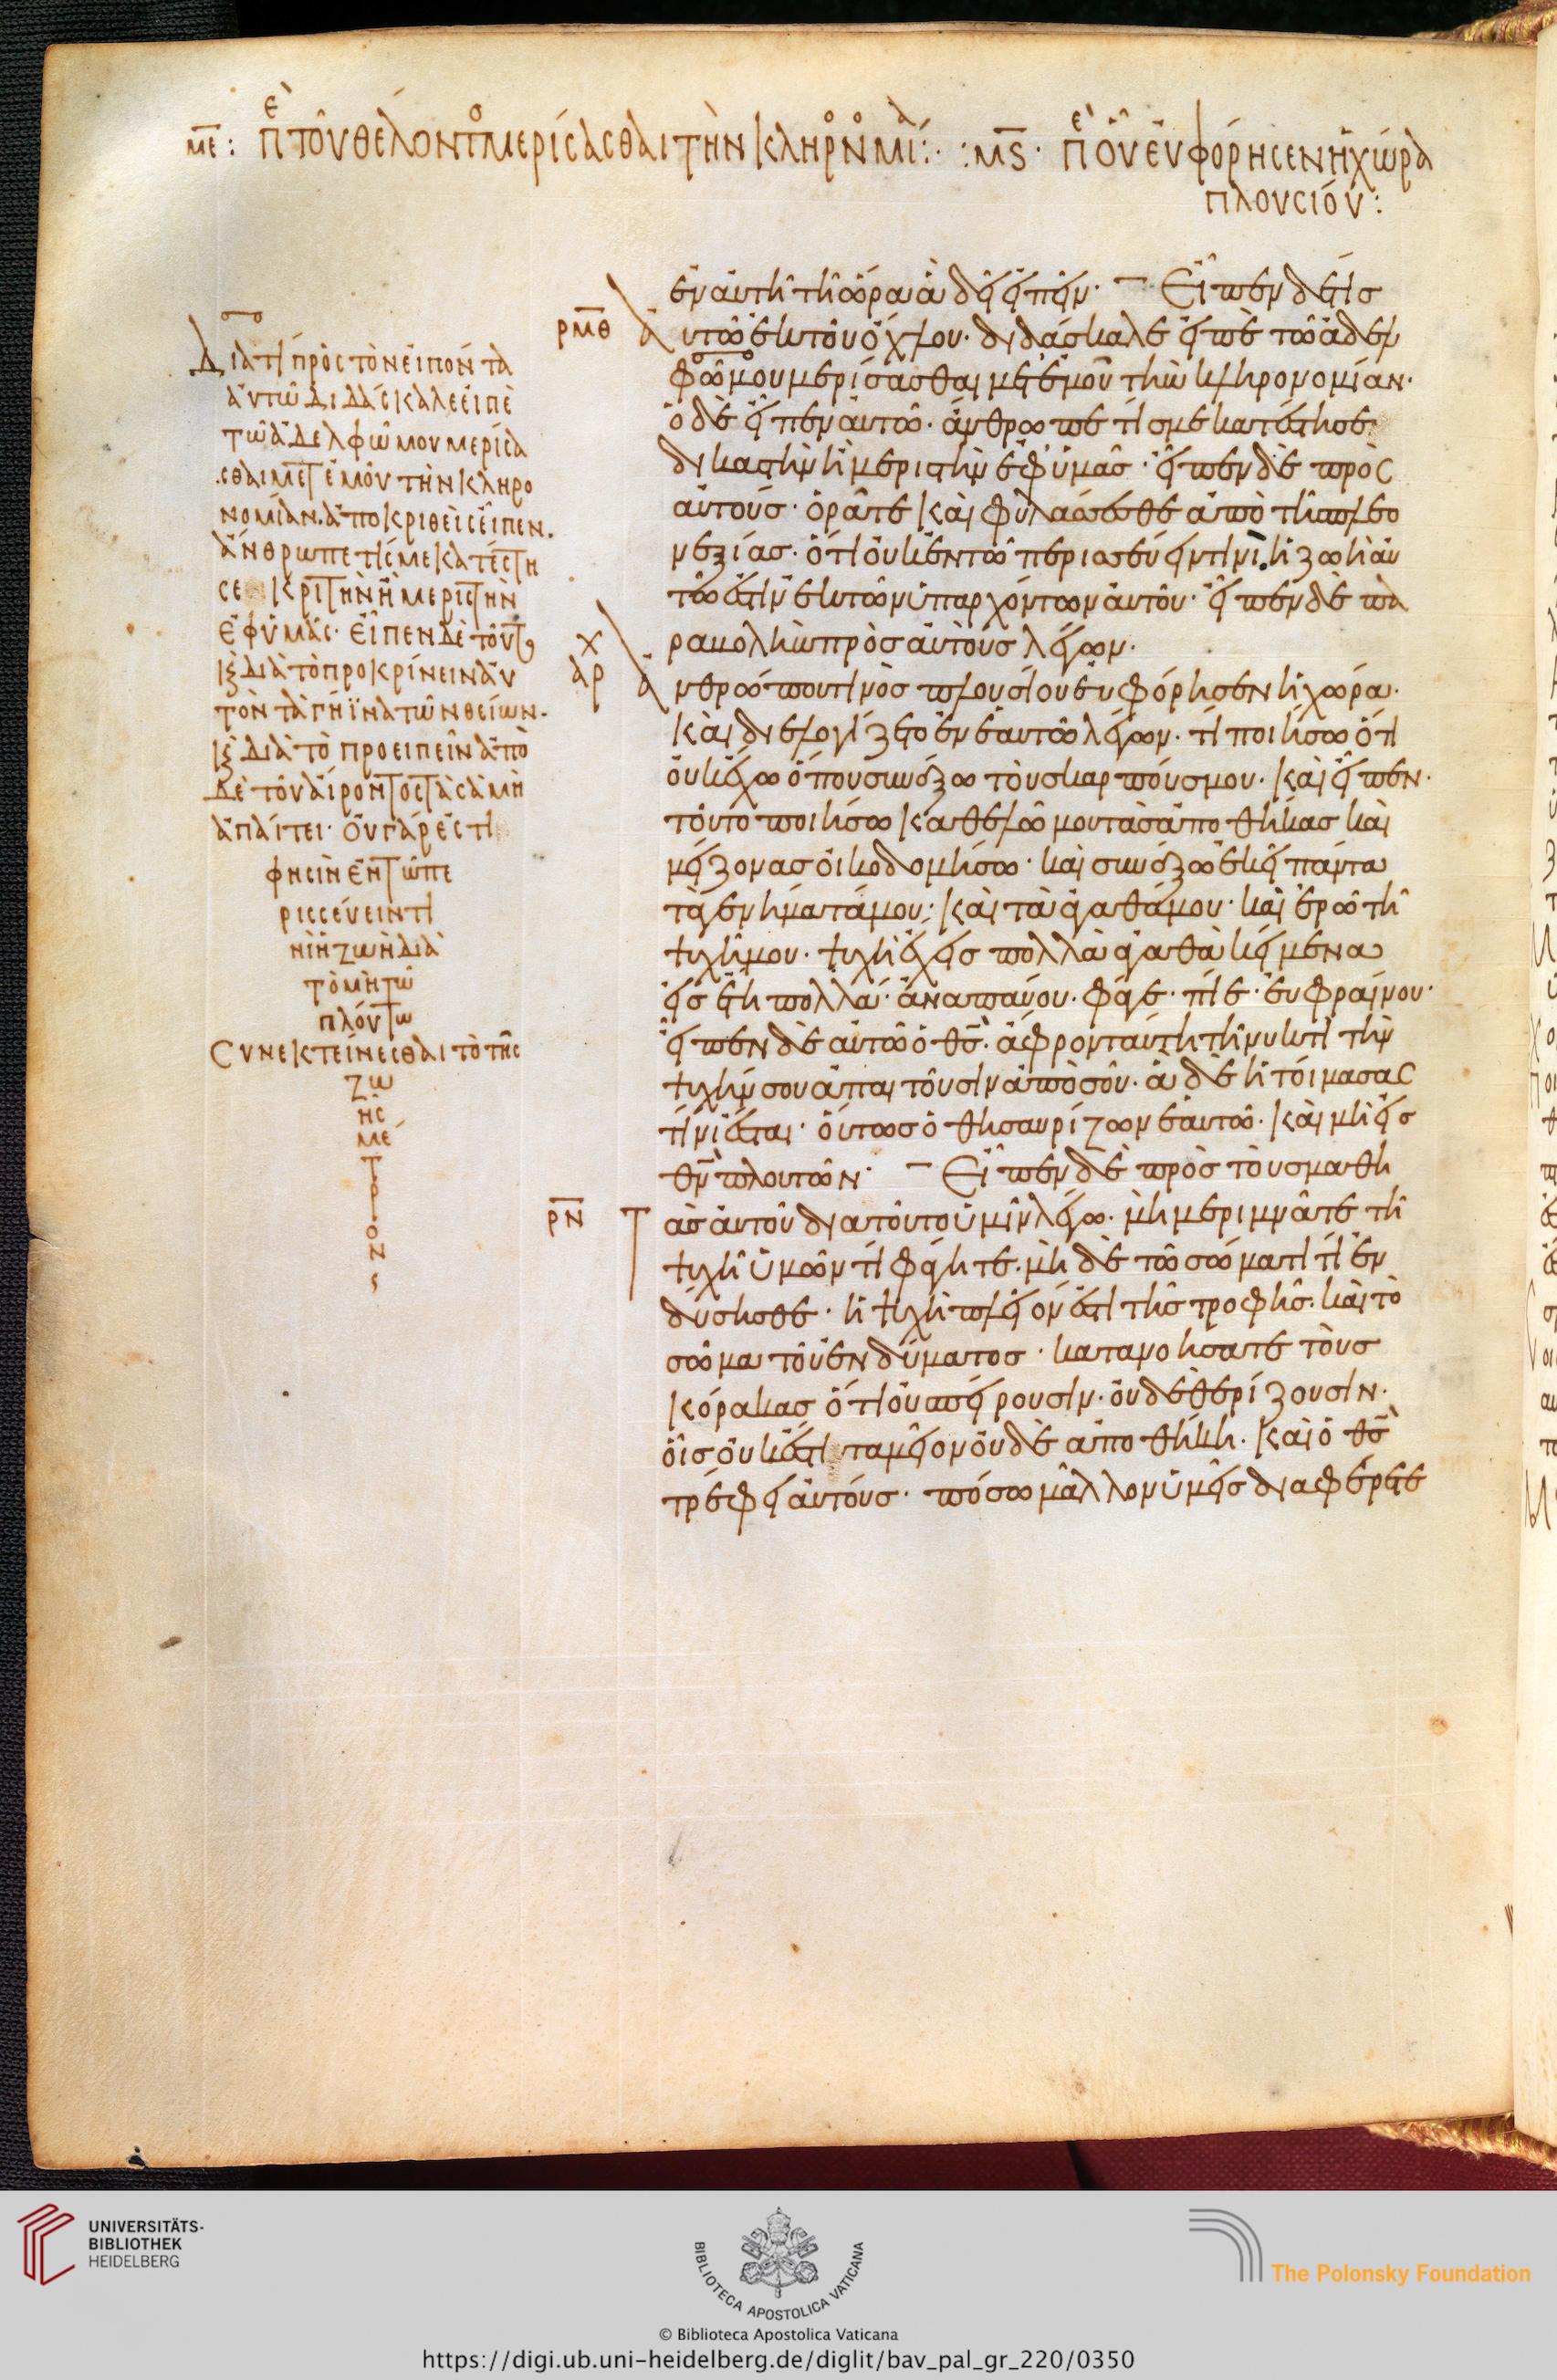 με: πε τοῦ θέλοντος μερίσασθαι τὴν κληρονομίαν: :μϛ· πε οὗ εὐφόρησεν ἡ χώρα
πλουσίου:
ἐν αὐτῆ τῆ ὥρα ἃ δεῖ εἰπεῖν· Εἶπεν δέ τίσ
ρμθ αὐτῶ ἐκ τοῦ ὄχλου· διδάσκαλε εἰπὲ τῶ ἀδελ
φῶ μου μερίσασθαι μετ' ἐμοῦ τὴν κληρονομίαν·
ὁ δὲ εἶπεν αὐτῶ· ἄνθρωπε τίσ με κατέστησε
δικαστὴν ἢ μεριστὴν ἐφ' ὑμᾶσ· εἶπεν δὲ πρὸς
αὐτούσ· ὁρᾶτε καὶ φυλάσσεσθε ἀπὸ τῆσ πλεο
νεξίασ· ὅτι οὐκ ἐν τῶ περισσεύειν τινὶ ἡ ζωὴ αὐ
τῶ ἐστὶν ἐκ τῶν ὑπαρχόντων αὐτοῦ· εἶπεν δὲ πα
χ ραβολὴν πρὸσ αὐτοὺσ λέγων·
αρ ἀνθρώπου τινὸσ πλουσίου εὐφόρησεν ἡ χώρα·
καὶ διελογίζετο ἐν ἑαυτῶ λέγων· τί ποιήσω ὅτι
οὐκ ἔχω ὅπου συνάξω τοὺσ καρπούσ μου· καὶ εἶπεν·
τοῦτο ποιήσω καθελῶ μου τὰσ ἀποθήκασ καὶ
μείζονασ οἰκοδομήσω· καὶ συνάξω ἐκεῖ πάντα
τὰ γενήματά μου· καὶ τὰ ἀγαθά μου· καὶ ἐρῶ τῆ
ψυχῆ μου· ψυχὴ ἔχεισ πολλὰ ἀγαθὰ κείμενα
εἰσ ἔτη πολλά· ἀναπαύου· φάγε· πίε· εὐφραίνου·
εἶπεν δὲ αὐτῶ ὁ θσ· ἄφρον ταύτη τῆ νυκτὶ τὴν
ψυχήν σου ἀπαιτοῦσιν ἀπὸ σοῦ· ἃ δὲ ἡτοίμασας
τίνι ἔσται· οὕτωσ ὁ θησαυρίζων ἑαυτῶ· καὶ μὴ εἰσ
θν πλουτῶν· Εἶπεν δὲ πρὸσ τοὺσ μαθη
ρν τὰσ αὐτοῦ διατοῦτο ὑμῖν λέγω· μὴ μεριμνᾶτε τῆ
ψυχῆ ὑμῶν τί φάγητε· μὴ δὲ τῶ σώματι τί ἐν
δύσησθε· ἡ ψυχὴ πλεῖον ἐστὶ τῆσ τροφῆσ· καὶ τὸ
σῶμα τοῦ ἐνδύματοσ· κατανοήσατε τοὺσ
κόρακασ ὅτι οὐ σπείρουσιν· οὐδὲ θερίζουσιν·
οἷσ οὐκ ἔστι ταμεῖον οὐδὲ ἀποθήκη· καὶ ὁ θσ
τρέφει αὐτούσ· πόσω μᾶλλον ὑμεῖσ διαφέρετε
Διατί πρὸς τὸν εἰπόντα
αὐτῶ διδάσκαλε εἰπὲ
τῶ ἀδελφῶ μου μερίσα
σθαι μετ' ἐμοῦ τὴν κληρο
νομίαν· ἀποκριθεὶς εἶπεν·
ἄνθρωπε τίς με κατέστη
σε κριτὴν ἢ μεριστὴν
ἐφ' ὑμᾶς· εἶπεν δὲ τοῦτο
κ διὰ τὸ προκρίνειν αὐ
τὸν τὰ γήϊνα τῶν θείων·
κ διὰ τὸ προειπεῖν ἀπὸ
δὲ τοῦ αἴροντος τὰ σὰ μὴ
ἀπαίτει· οὐ γάρ ἐστι
φησὶν ἐν τῶ πε
ρισσεύειν τι
νὶ ἡ ζωὴ διὰ
τὸ μὴ τῶ
πλούτω
συνεκτείνεσθαι τὸ τῆς
ζω
ῆς
μέ
τ
ρ
ι
ο
ν
UNIVERSITÄTS-
BIBLIOTHEK
HEIDELBERG
BIBLIOTECA APOSTOLICA VATICANA
The Polonsky Foundation
© Biblioteca Apostolica Vaticana
https://digi.ub.uni-heidelberg.de/diglit/bav_pal_gr_220/0350